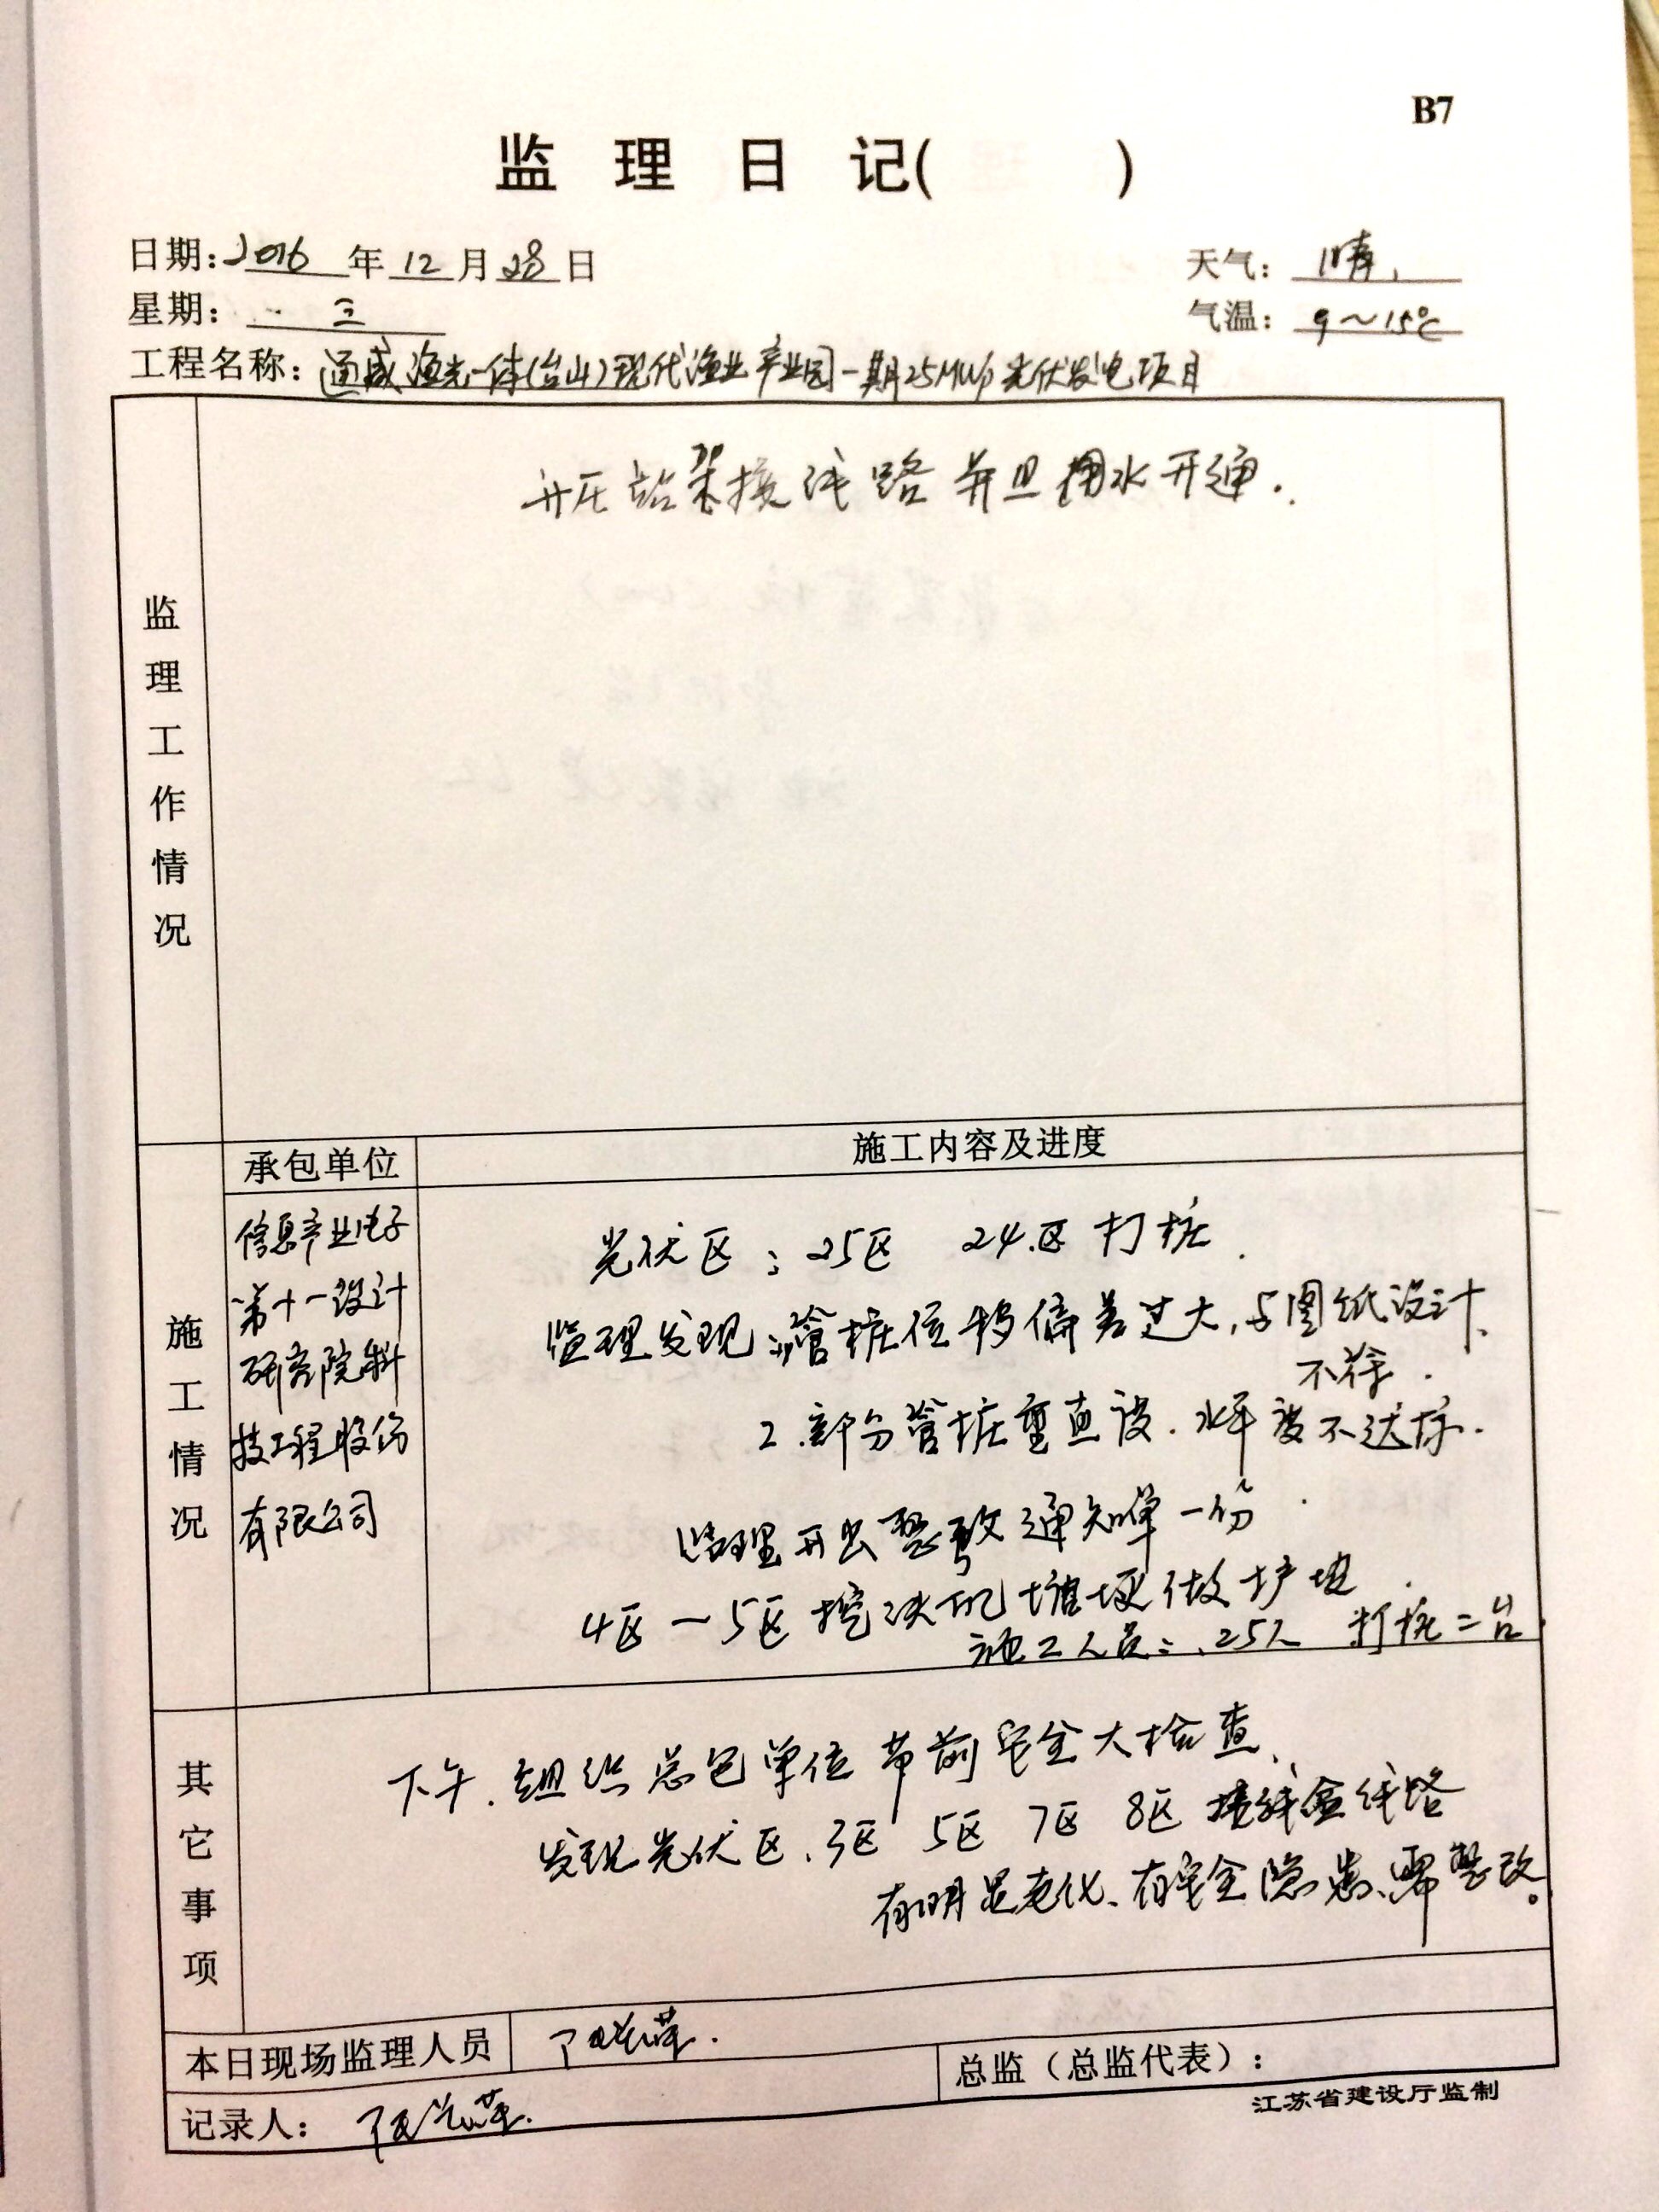 B7
监 理 日 记( )
日期:2016年12月28日
天气: 晴
星期: 三
气温: 9～15℃
工程名称:通威渔光一体(台山)现代渔业产业园一期25MWp光伏发电项目
监理工作情况
升压站架接线路并且用水开通.
施工情况
承包单位
施工内容及进度
信息产业电子
第十一设计
研究院科
技工程股份
有限公司
光伏区: 25区 24区打桩.
监理发现:管桩位移偏差过大,与图纸设计
不符.
2.部分管桩垂直度.水平度不达标.
监理开出整改通知单一份.
4区一5区挖机埂做护坡.
施工人员: 25人 打桩二台.
其它事项
下午.组织总包单位节前安全大检查、
发现光伏区、3区 5区 7区 8区接线盒线路
有明显老化、有安全隐患、需整改。
本日现场监理人员
总监（总监代表）：
记录人:
江苏省建设厅监制